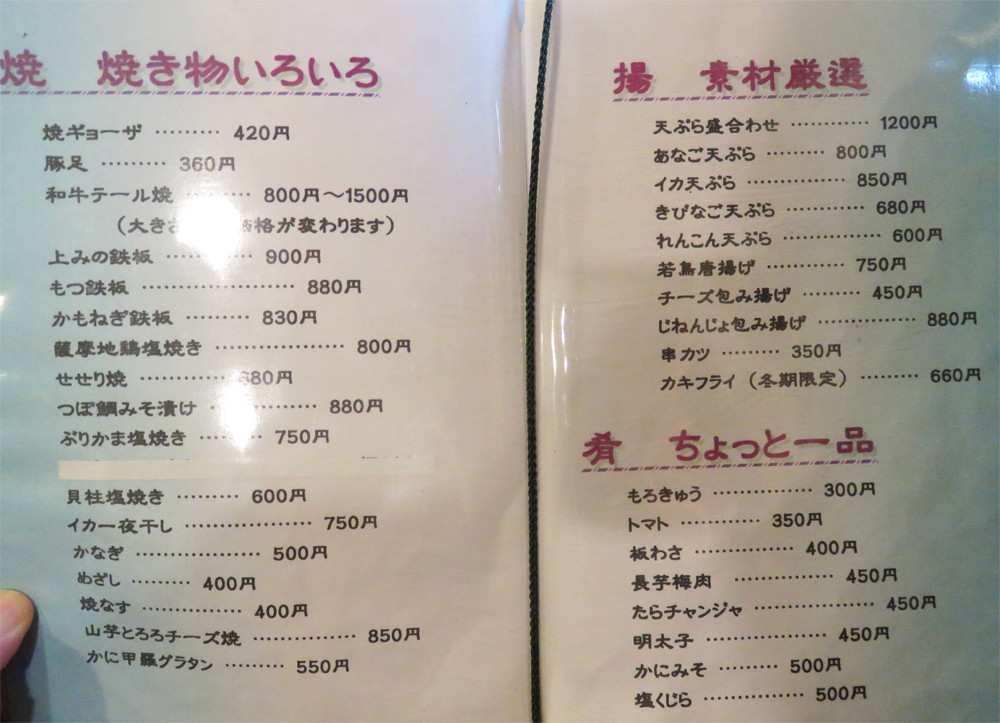 焼　焼き物いろいろ
焼ギョーザ ……… 420円
豚足 ……… 360円
和牛テール焼 ……… 800円～1500円
（大きさ 格が変わります）
上みの鉄板 ………… 900円
もつ鉄板 ………………… 880円
かもねぎ鉄板 ……… 830円
薩摩地鶏塩焼き ……………… 800円
せせり焼 ………… 680円
つぼ鯛みそ漬け …………… 880円
ぶりかま塩焼き ……… 750円
貝柱塩焼き ……… 600円
イカ一夜干し ……………… 750円
かなぎ ……………… 500円
めざし ……… 400円
焼なす ………… 400円
山芋とろろチーズ焼 …………… 850円
かに甲羅グラタン ……… 550円
揚　素材厳選
天ぷら盛合わせ ………… 1200円
あなご天ぷら ……… 800円
イカ天ぷら …………… 850円
きびなご天ぷら ………… 680円
れんこん天ぷら …………… 600円
若鳥唐揚げ ………… 750円
チーズ包み揚げ ……… 450円
じねんじょ包み揚げ …………… 880円
串カツ ……… 350円
カキフライ（冬期限定） ……… 660円
肴　ちょっと一品
もろきゅう …………… 300円
トマト ………… 350円
板わさ …………… 400円
長芋梅肉 ………… 450円
たらチャンジャ ……………… 450円
明太子 ……………… 450円
かにみそ ……… 500円
塩くじら …………… 500円